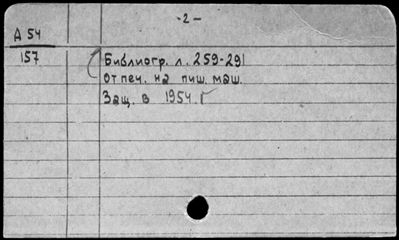 -2-
А 54
157
Библиогр. л. 259-291
Отпеч. на пиш. маш.
Защ. в 1954 г